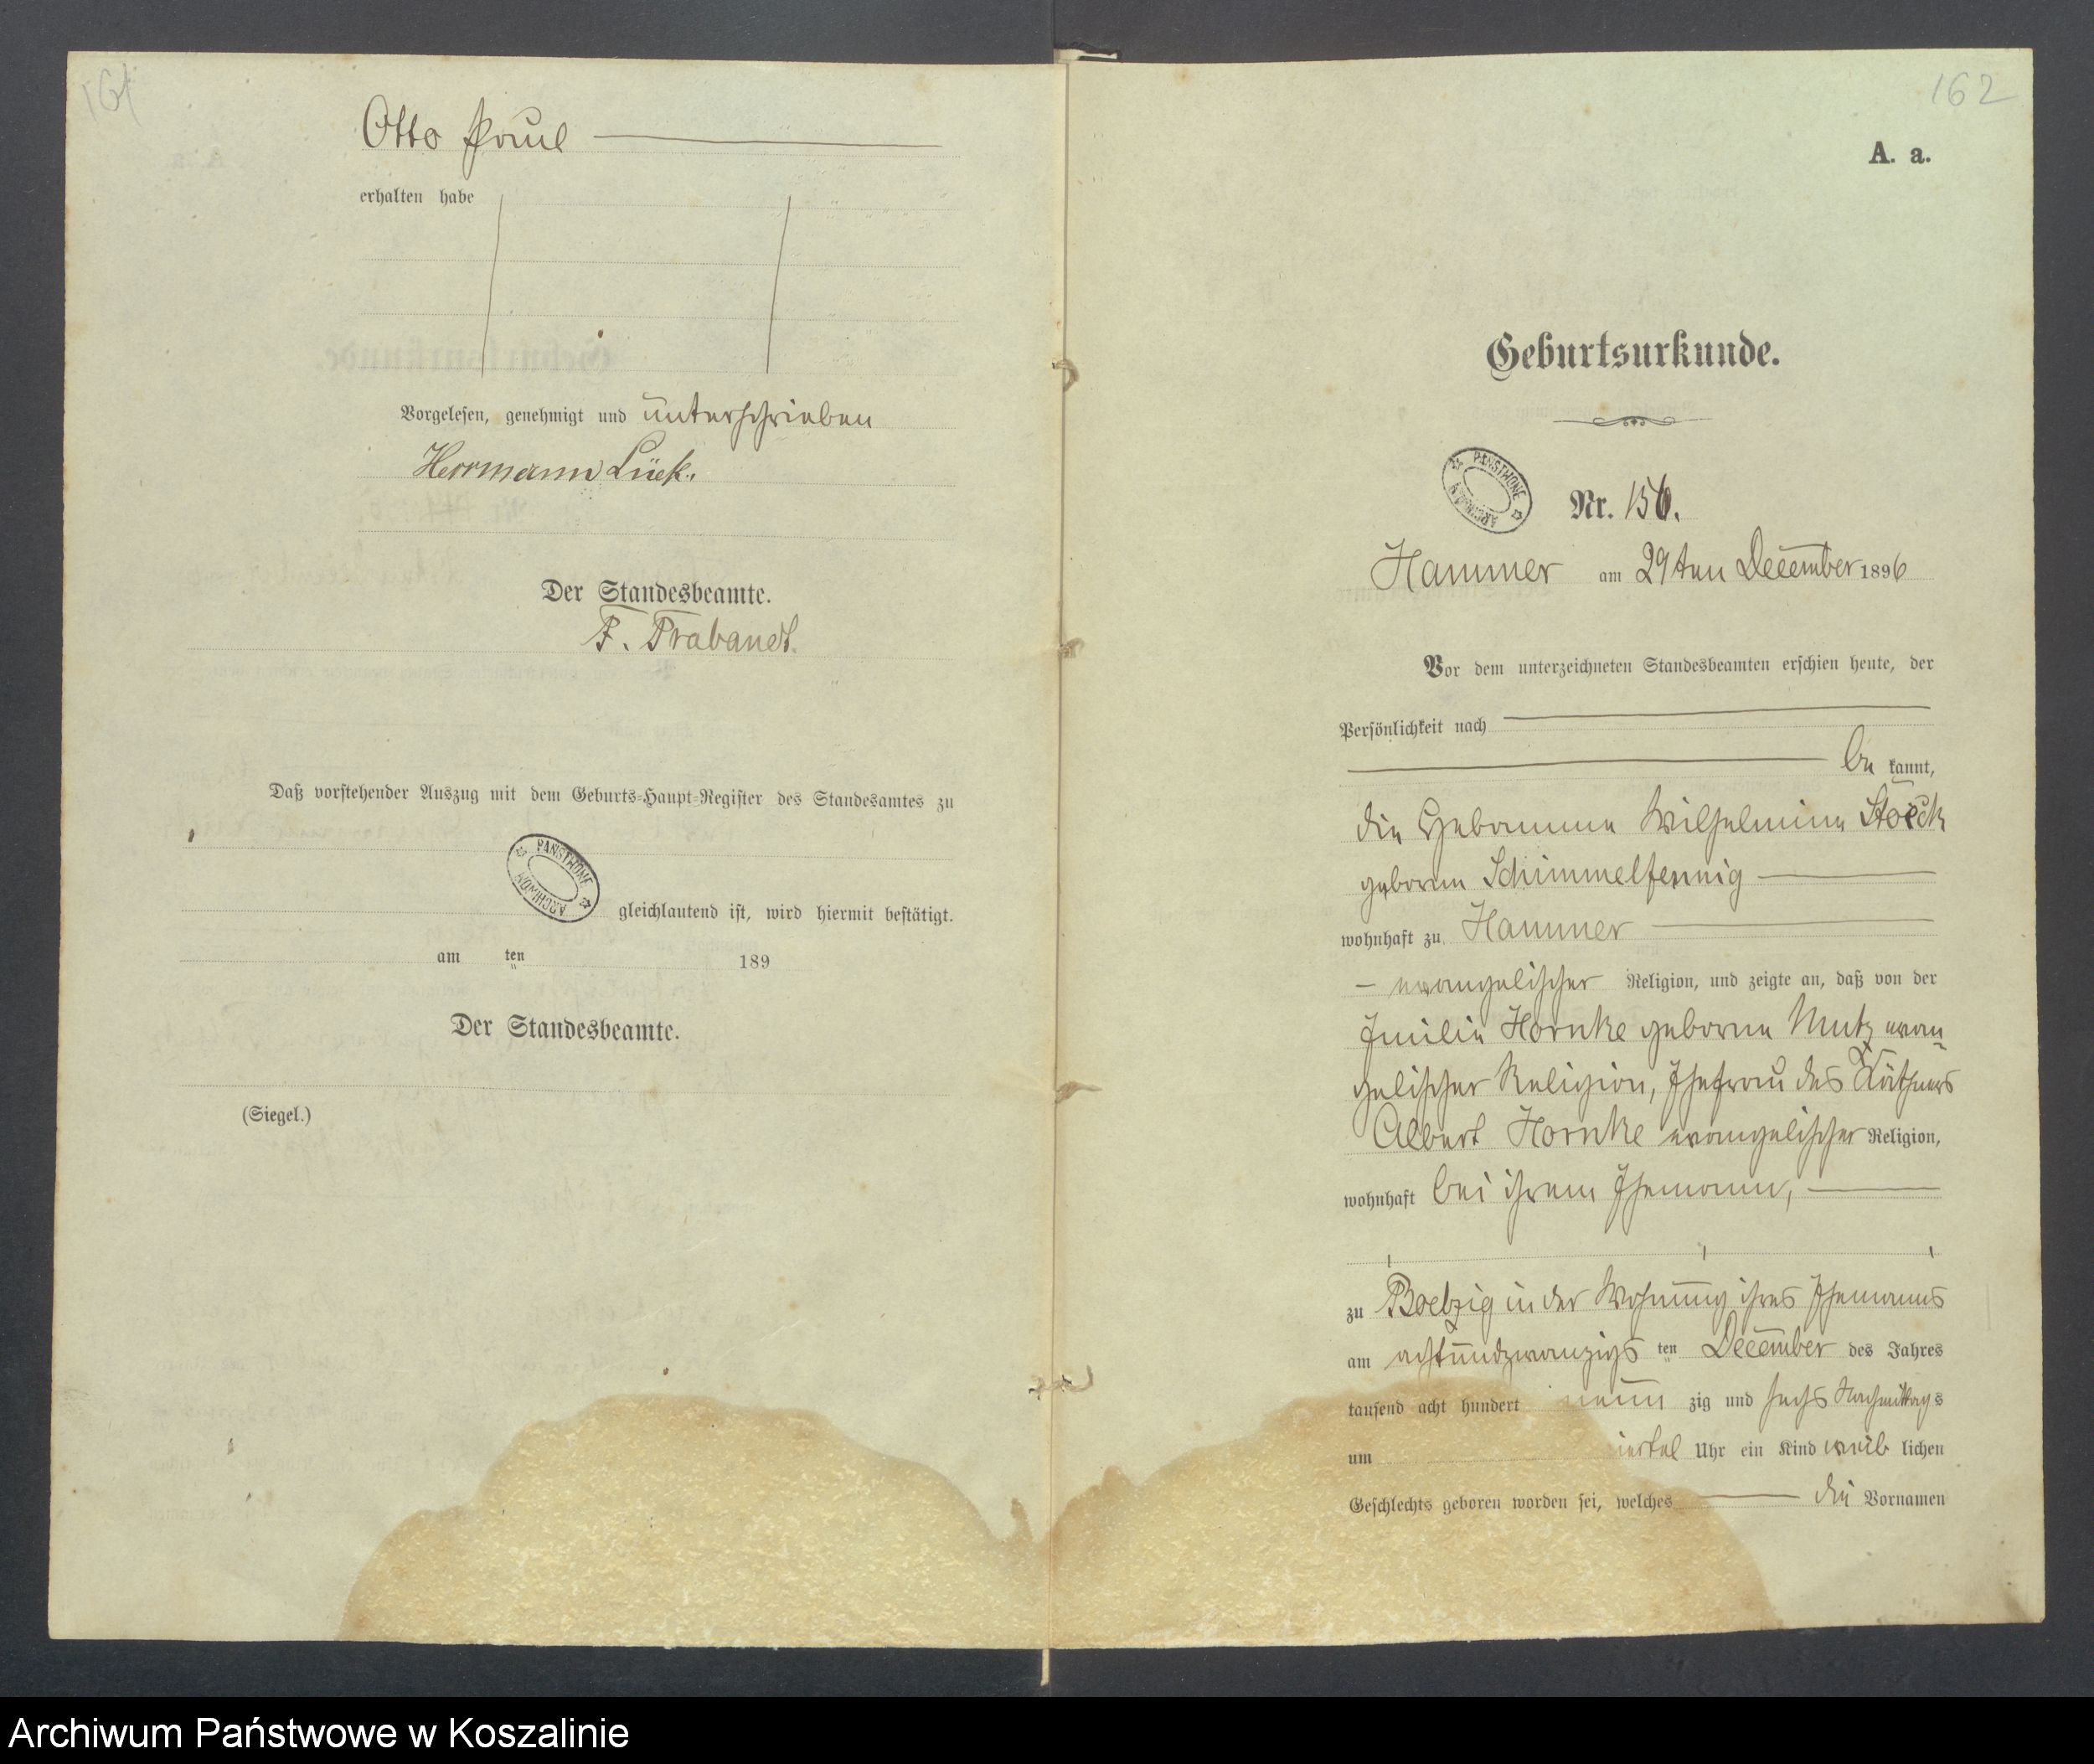 161
Otto Paul
erhalten habe
Vorgelesen, genehmigt und unterschrieben
Herrmann Lück.
Der Standesbeamte.
F. Trabandt.
Daß vorstehender Auszug mit dem Geburts-Haupt-Register des Standesamtes zu
PAŃSTWOWE ARCHIWUM
gleichlautend ist, wird hiermit bestätigt.
am ten 189
Der Standesbeamte.
(Siegel.)
162
A. a.
Geburtsurkunde.
PAŃSTWOWE ARCHIWUM
Nr. 156.
Hammer am 29ten December 1896
Vor dem unterzeichneten Standesbeamten erschien heute, der
Persönlichkeit nach
be kannt,
die Hebamme Wilhelmine Stöck
geborne Schimmelfennig
wohnhaft zu Hammer
evangelischer Religion, und zeigte an, daß von der
Emilie Hornke geborne Mutz evan-
gelischer Religion, Ehefrau des Käthners
Albert Hornke evangelischer Religion,
wohnhaft bei ihrem Ehemann,
zu Boelzig in der Wohnung ihres Ehemanns
am achtundzwanzigs ten December des Jahres
tausend acht hundert neun zig und sechs Nachmittags
um iertel Uhr ein Kind weib lichen
Geschlechts geboren worden sei, welches die Vornamen
Archiwum Państwowe w Koszalinie